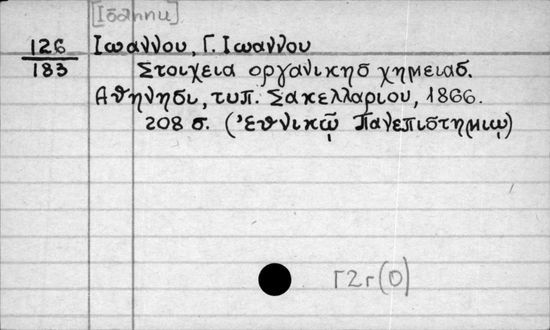 [Iōannu]
126 Ιωαννου, Γ. Ιωαννου
183 Στοιχεια οργανικησ χημειασ.
Αθηνησι, τυπ. Σακελλαριου, 1866.
208 σ. ('εθνικῷ Πανεπιστημιῳ)
Γ2г(0)